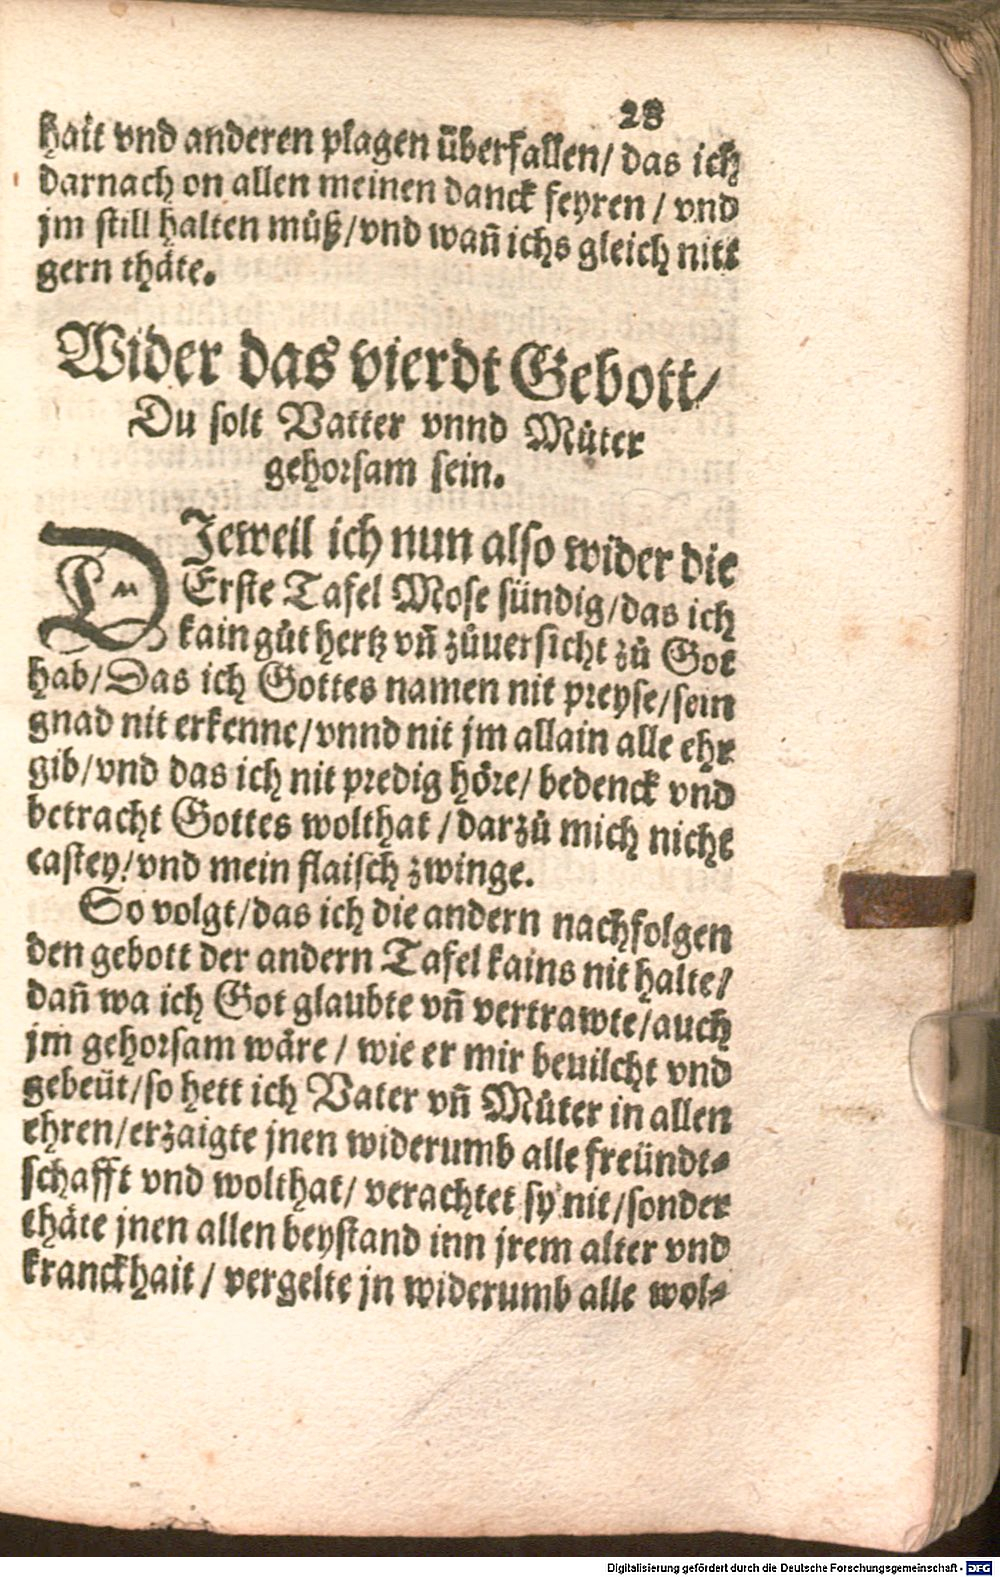 28
hait vnd anderen plagen überfallen/ das ich
darnach on allen meinen danck feyren / vnd
jm still halten müß/vnd wañ ichs gleich nitt
gern thäte.
Wider das vierdt Gebott/
Du solt Vatter vnnd Můter
gehorsam sein.
DJeweil ich nun also wider die
Erste Tafel Mose sündig/das ich
kain gůt hertz vñ zůuersicht zů Got
hab/Das ich Gottes namen nit preyse/sein
gnad nit erkenne/vnnd nit jm allain alle ehr
gib/vnd das ich nit predig höre/ bedenck vnd
betracht Gottes wolthat / darzů mich nicht
castey/vnd mein flaisch zwinge.
So volgt/das ich die andern nachfolgen
den gebott der andern Tafel kains nit halte/
dañ wa ich Got glaubte vñ vertrawte/auch
jm gehorsam wäre / wie er mir beuilcht vnd
gebeüt/so hett ich Vater vñ Můter in allen
ehren/erzaigte jnen widerumb alle freündt⸗
schafft vnd wolthat/ verachtet sy nit/sonder
thäte jnen allen beystand inn jrem alter vnd
kranckhait / vergelte jn widerumb alle wol⸗
Digitalisierung gefördert durch die Deutsche Forschungsgemeinschaft - DFG